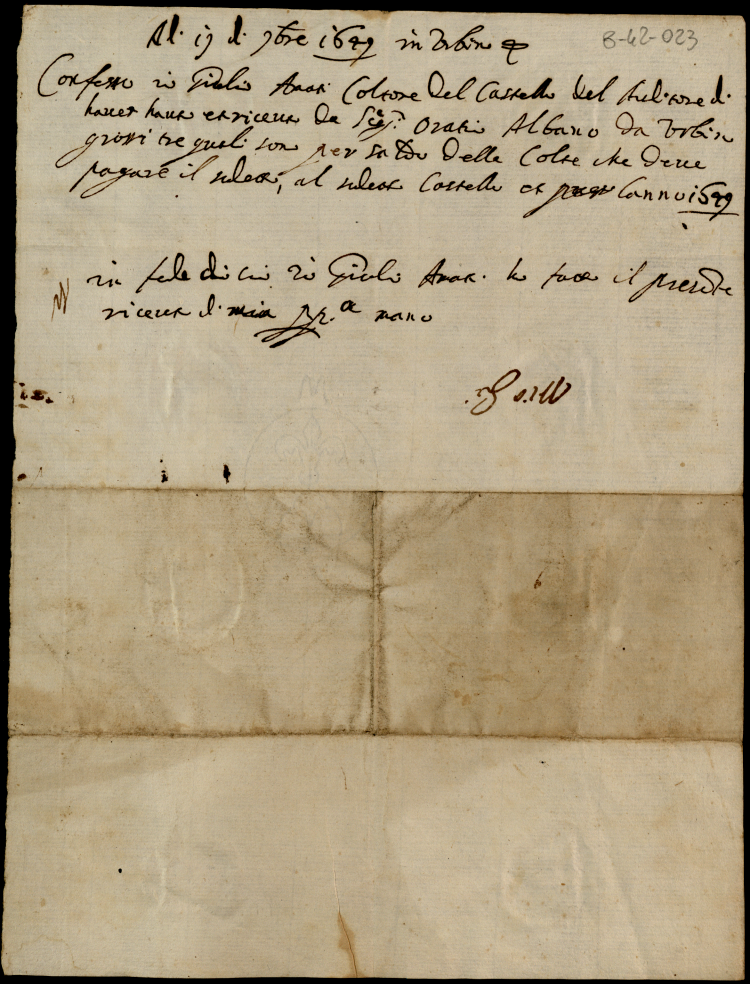 Al. 17 d. 9bre 1649 in Urbino
B-42-023
Confesso io Giulio Coltore del Castello del Auditore di
haver hauto et riceuto da Sig.r Oratio Albano da Urbino
grossi tre quali son per saldo delle Colte che deve
pagare il sudeto, al sudeto Castello et lanno 1649
in fede di ciò io Giulio ho fatto il presente
riceuto di mia pp.a mano